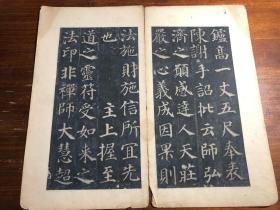 鑪高一丈五尺奉表
陳謝手詔批云師弘
濟之願感達人天莊
嚴之心義成因果則
法施財施信所宜先
也 主上握至
道之靈符受如來之
法印非禪師大慧超